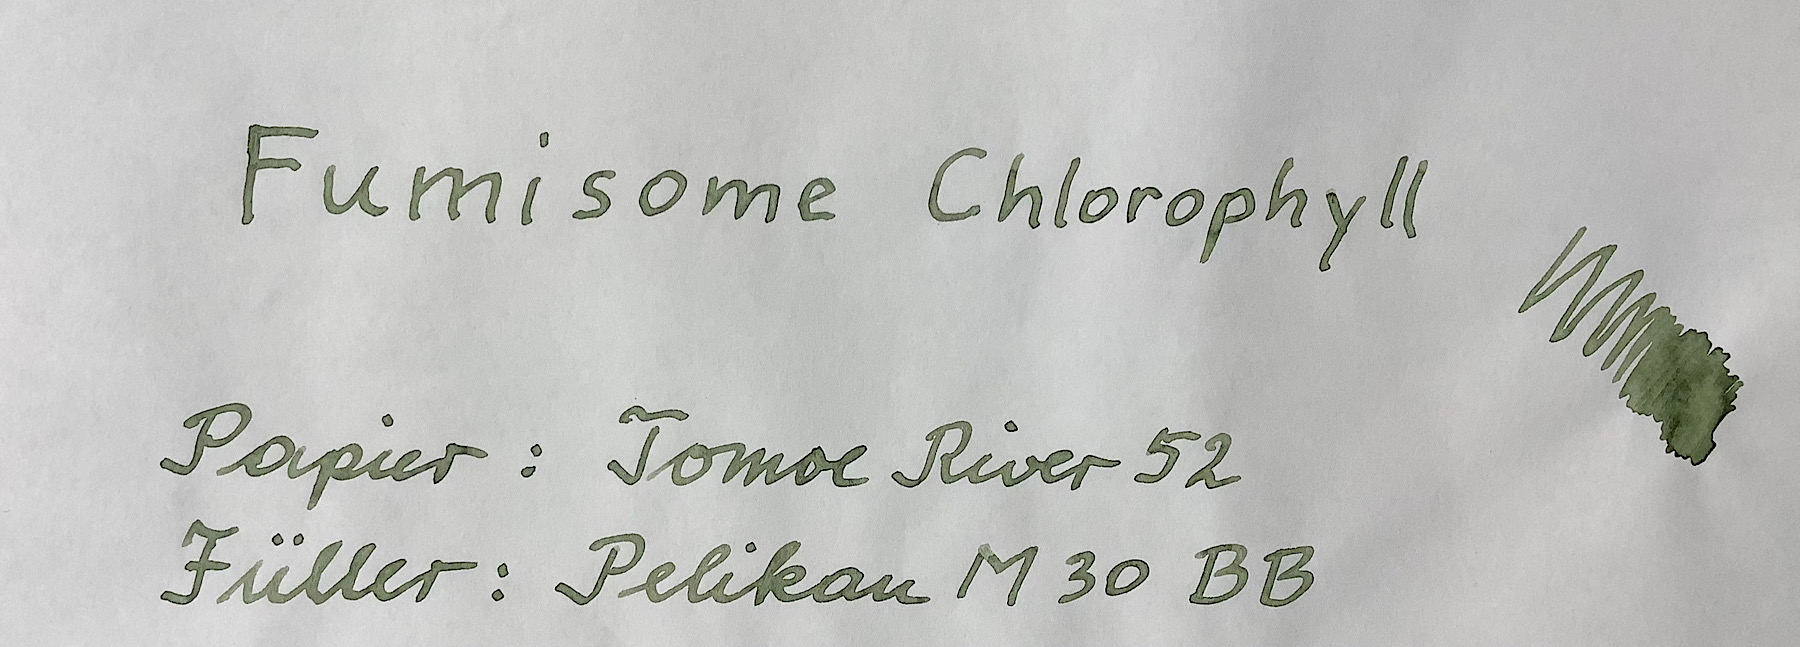 Fumisome Chlorophyll
Papier: Tomoe River 52
Füller: Pelikan M 30 BB